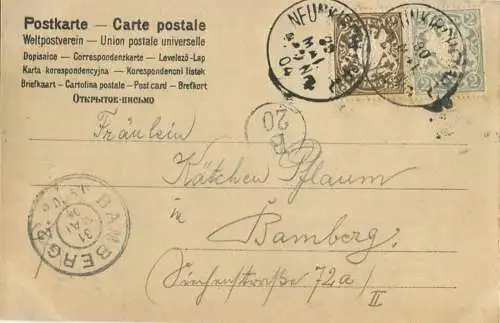 Postkarte — Carte postale
Weltpostverein — Union postale universelle
Dopisnice — Correspondenzkarte — Levelező-Lap
Karta korespondencyjna — Korespondencni listek
Briefkaart — Cartolina postale — Post card — Brefkort
Открытое-письмо
NEUNKIRCHEN
30
MAI
04
B
20
Fräulein
Kätchen Pflaum
in
Bamberg.
72a/II
BAMBERG 2.
31
MAI
04